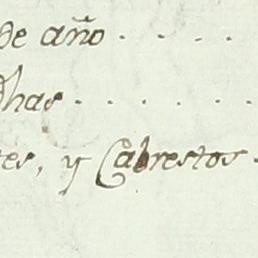 de año . . . .
dhas . . . . .
tes, y Cabrestos .